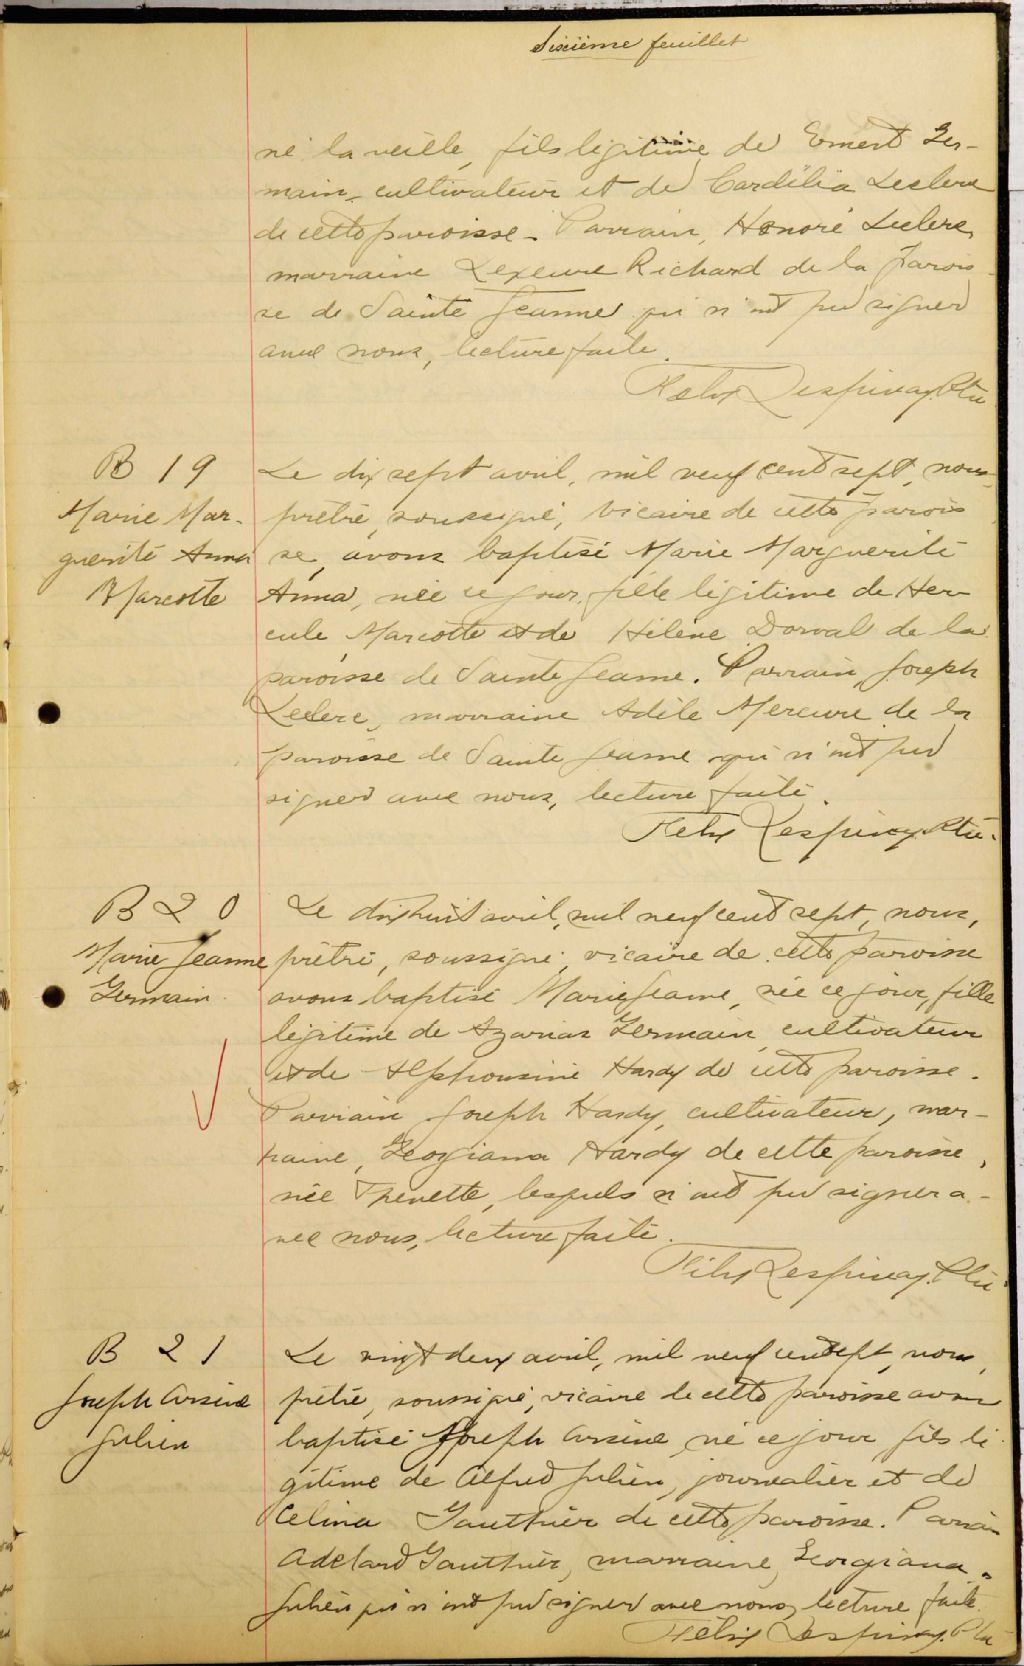 Sixième feuillet
né la veille, fils légitime de Ernest Ger-
main, cultivateur et de Cardélia Leclerc
de cette paroisse - Parrain, Honoré Leclerc,
marraine Richard de la Parois
se de Sainte Jeanne qui n'ont pu signer
avec nous, lecture faite.
Félix Despinay Ptre
B 19
Marie Mar-
guerite Anna
Marcotte
Le dix sept avril, mil neuf cent sept, nous,
prêtre, soussigné, vicaire de cette parois
se, avons baptisé Marie Marguerite
Anna, née ce jour, fille légitime de Her-
cule Marcotte et de Hélène Dorval de la
paroisse de Sainte Jeanne. Parrain, Joseph
Leclerc, marraine Adèle Mercure de la
paroisse de Sainte Jeanne qui n'ont pu
signer avec nous, lecture faite.
Félix Despinay Ptre.
B 20
Marie Jeanne
Germain
Le dix huit avril, mil neuf cent sept, nous,
prêtre, soussigné, vicaire de cette paroisse
avons baptisé Marie Jeanne, née ce jour, fille
légitime de Azarias Germain, cultivateur
et de Alphonsine Hardy de cette paroisse.
Parrain Joseph Hardy, cultivateur, mar-
raine, Georgiana Hardy de cette paroisse,
née lesquels n'ont pu signer a-
vec nous, lecture faite.
Félix Despinay. Ptre
B 21
Joseph Arsène
Julien
Le vingt deux avril, mil neuf cent sept, nous,
prêtre, soussigné, vicaire de cette paroisse avons
baptisé Joseph Arsène, né ce jour, fils lé
gitime de Alfred Julien, journalier et de
Celina Gauthier de cette paroisse. Parrain
Adelard Gauthier, marraine, Georgiana
Julien qui n'ont pu signer avec nous, lecture faite.
Félix Despinay. Ptre